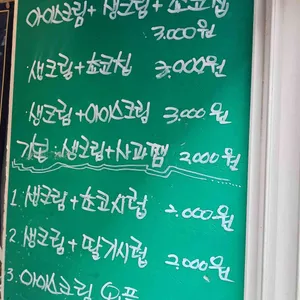 아이스크림+생크림+초코칩
3.000원
생크림+초코칩 3,000원
생크림+아이스크림 3,000원
기본 생크림+사과쨈 2,000원
1. 생크림+초코시럽 2.000원
2. 생크림+딸기시럽 2.000원
3. 아이스크림 와플